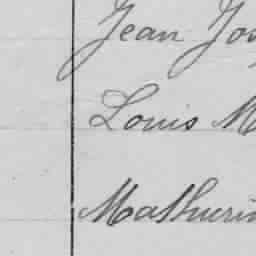 Jean Jos
Louis M
Mathurin